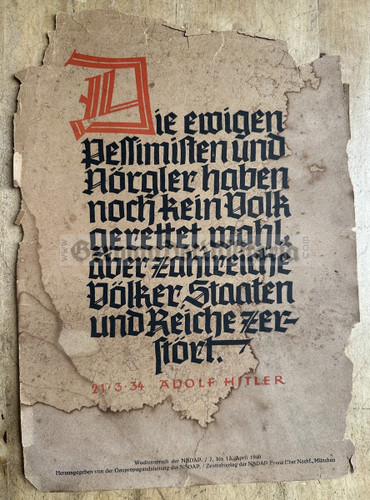 Die ewigen
Pessimisten und
Nörgler haben
noch kein Volk
gerettet wohl,
aber zahlreiche
Völker, Staaten
und Reiche zer-
stört.
21·3·34 ADOLF HITLER
Wochenspruch der NSDAP. / 7. bis 13. April 1940
Herausgegeben von der Reichspropagandaleitung der NSDAP. / Zentralverlag der NSDAP. Franz Eher Nachf., München